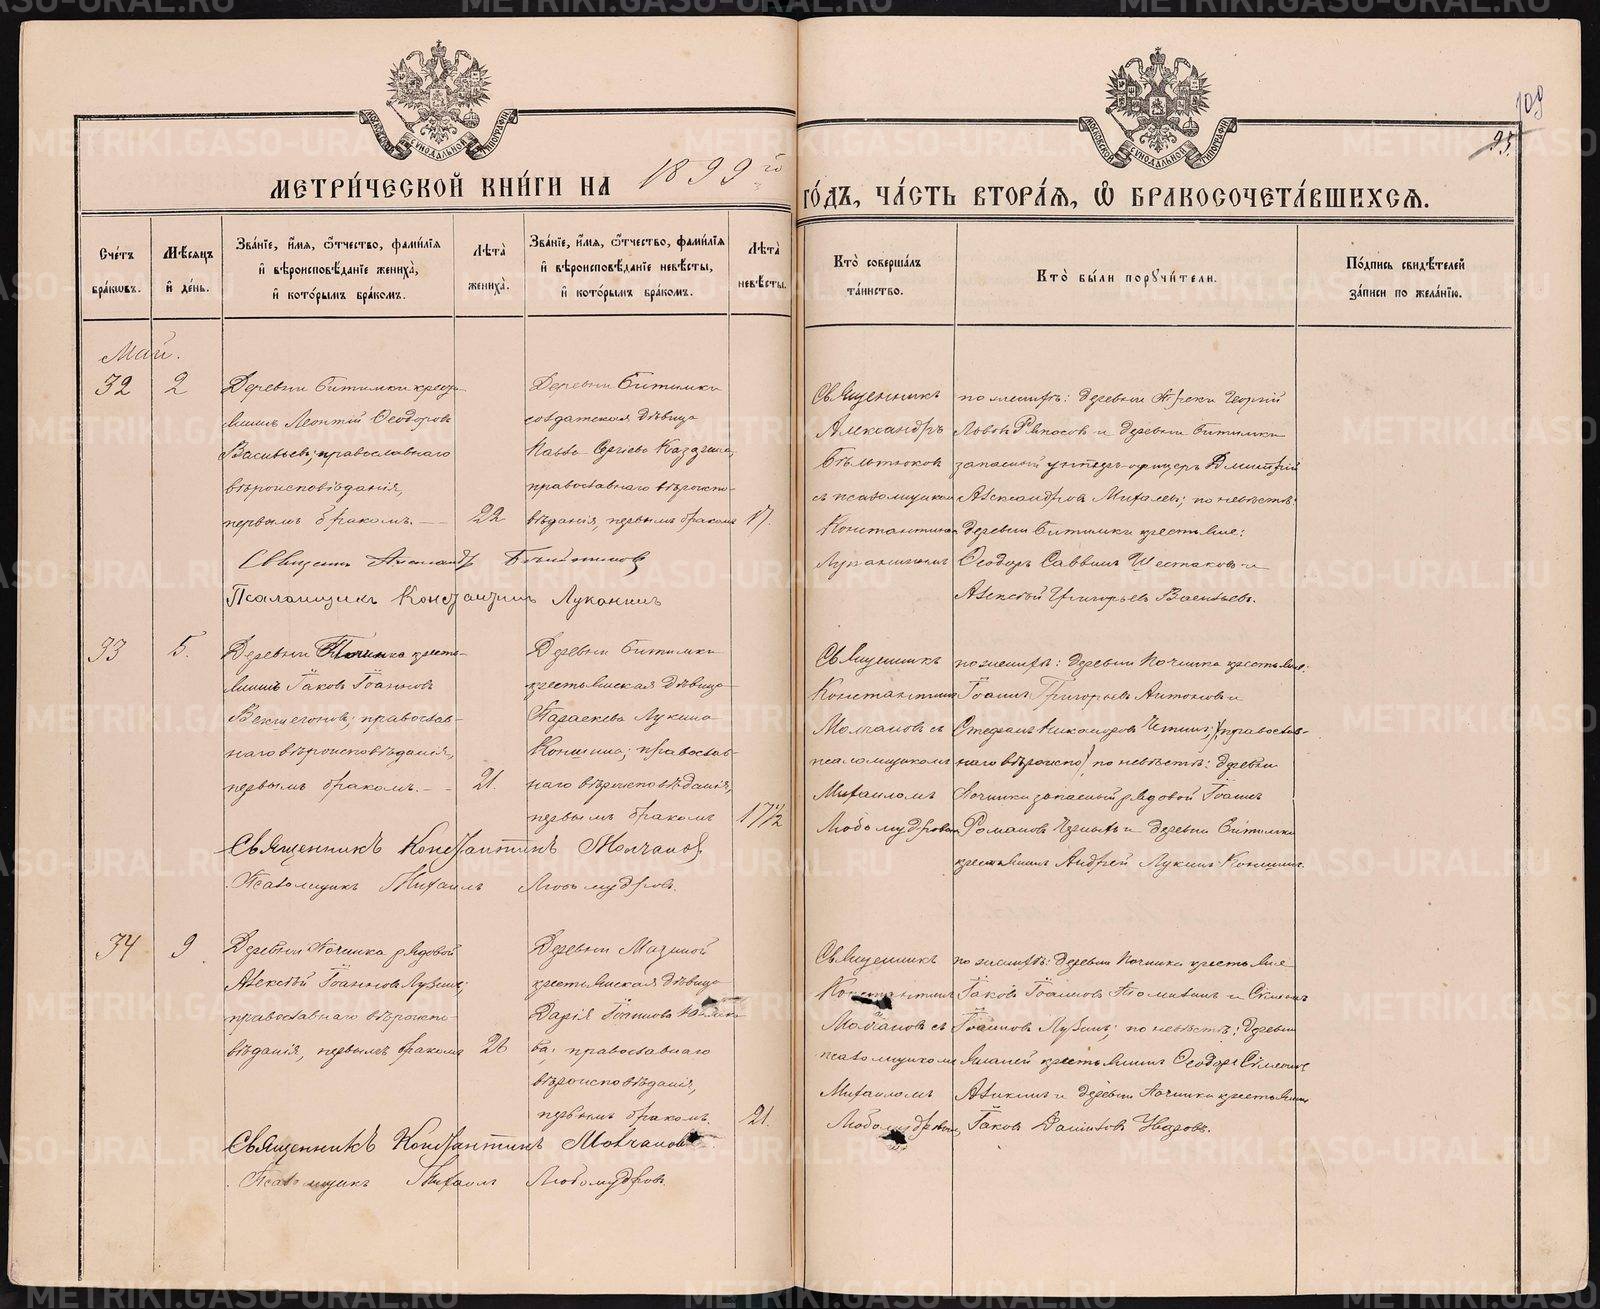 109
93.
МЕТРИЧЕСКОЙ КНИГИ НА 1899го ГОДЪ, ЧАСТЬ ВТОРАЯ, Ѡ БРАКОСОЧЕТАВШИХСЯ.
Счетъ браковъ.
Мѣсяцъ и день.
Званіе, имя, ѿчество, фамилія и вѣроисповѣданіе жениха, и которымъ бракомъ.
Лѣта жениха.
Званіе, имя, ѿчество, фамилія и вѣроисповѣданіе невѣсты, и которымъ бракомъ.
Лѣта невѣсты.
Кто совершалъ таинство.
Кто были поручители.
Подпись свидѣтелей записи по желанію.
Май.
32
2
Деревни Битимки кресть-
янинъ Леонтій Ѳеодоровъ
Васильевъ; православнаго
вѣроисповѣданія,
первымъ бракомъ.
22
Деревни Битимки
солдатская дѣвица
Павла Сергіева
православнаго вѣроиспо-
вѣданія, первымъ бракомъ
17.
Священникъ
Александръ
Бѣльтюковъ
съ псаломщикомъ
Константиномъ
Луканинымъ
по женихѣ: деревни Треки Георгій
Львовъ и деревни Битимки
запасный унтеръ-офицеръ Дмитрій
Александровъ Михалевъ; по невѣстѣ:
деревни Битимки крестьяне:
Ѳеодоръ Саввинъ Шестаковъ и
Алексѣй Григорьевъ Васильевъ.
Священникъ Александръ Бѣльтюковъ
Псаломщикъ Константинъ Луканинъ
33
5.
Деревни Починка кресть-
янинъ Іаковъ Іоанновъ
православ-
наго вѣроисповѣданія,
первымъ бракомъ.
21.
Деревни Битимки
крестьянская дѣвица
Параскева Лукина
Коншина; православ-
наго вѣроисповѣданія,
первымъ бракомъ
17 1/2
Священникъ
Константинъ
Молчановъ съ
псаломщикомъ
Михаиломъ
Любомудровымъ
по женихѣ: деревни Починка крестьяне:
Іоаннъ Григорьевъ Антоновъ и
Стефанъ Никаноровъ (православ-
наго вѣроиспо) по невѣстѣ: деревни
Починки запасный рядовой Іоаннъ
Романовъ и деревни Битимки
крестьянинъ Андрей Лукинъ Коншинъ.
Священникъ Константинъ Молчановъ
Псаломщикъ Михаилъ Любомудровъ.
34
9.
Деревни Починка рядовой
Алексѣй Іоанновъ Лузинъ;
православнаго вѣроиспо-
вѣданія, первымъ бракомъ
26
Деревни Мазиной
крестьянская дѣвица
Дарія Іоаннова
ва; православнаго
вѣроисповѣданія,
первымъ бракомъ.
21.
Священникъ
Константинъ
Молчановъ съ
псаломщикомъ
Михаиломъ
Любомудровымъ
по женихѣ: деревни Починка крестьяне
Іаковъ Іоанновъ и Симеонъ
Іоанновъ Лузинъ; по невѣстѣ: деревни
крестьянинъ Ѳеодоръ Симеоновъ
и деревни Починка крестьянинъ
Іаковъ Уваровъ.
Священникъ Константинъ Молчановъ
Псаломщикъ Михаилъ Любомудровъ.
METRIKI.GASO-URAL.RU